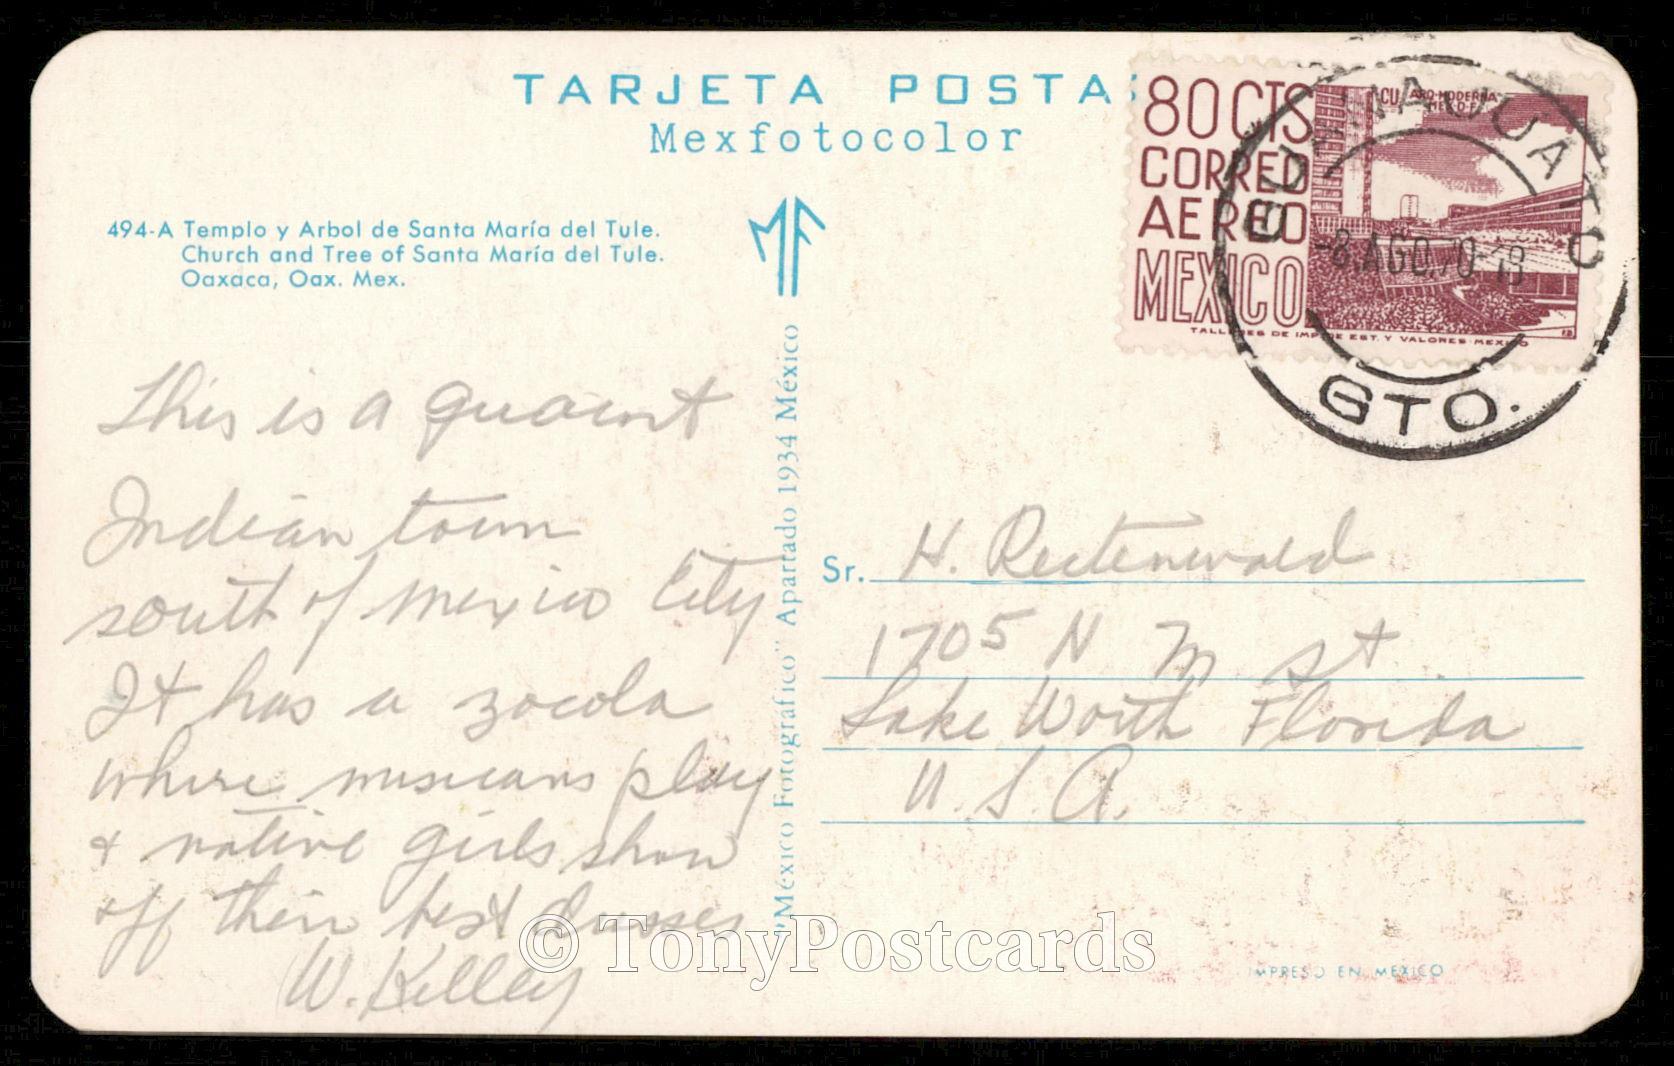 TARJETA POSTA
Mexfotocolor
494-A Templo y Arbol de Santa María del Tule.
Church and Tree of Santa María del Tule.
Oaxaca, Oax. Mex.
MF
"México Fotográfico" Apartado 1934 México
80 CTS
CORREO
AEREO
MEXICO
CU ARQ-MODERNA
MEX-D-F
TALLERES DE IMP. DE EST. Y VALORES-MEXICO
GUANAJUATO
-8.AGO.70-18
GTO.
This is a quaint
Indian town
south of Mexico City
It has a zocola
where musicans play
+ native girls show
off their best dresses
W. Kelley
Sr. H. Rectenwald
1705 N M St
Lake Worth Florida
U.S.A.
© TonyPostcards
IMPRESO EN MEXICO